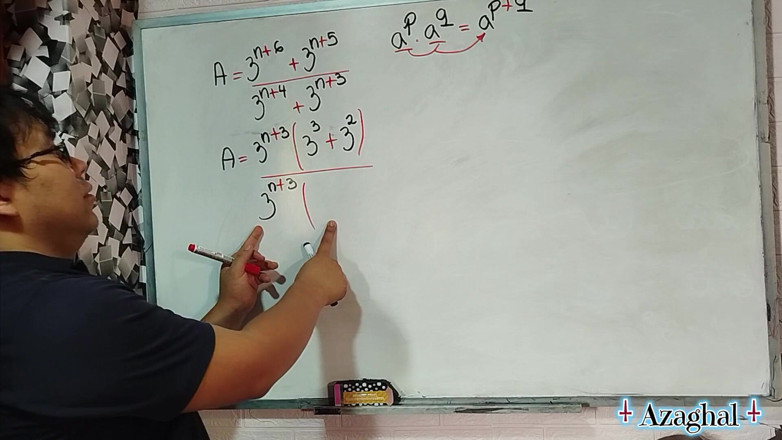 a^p · a^q = a^{p+q}
A = \frac{3^{n+6} + 3^{n+5}}{3^{n+4} + 3^{n+3}}
A = \frac{3^{n+3}(3^3 + 3^2)}{3^{n+3}(}
Azaghal